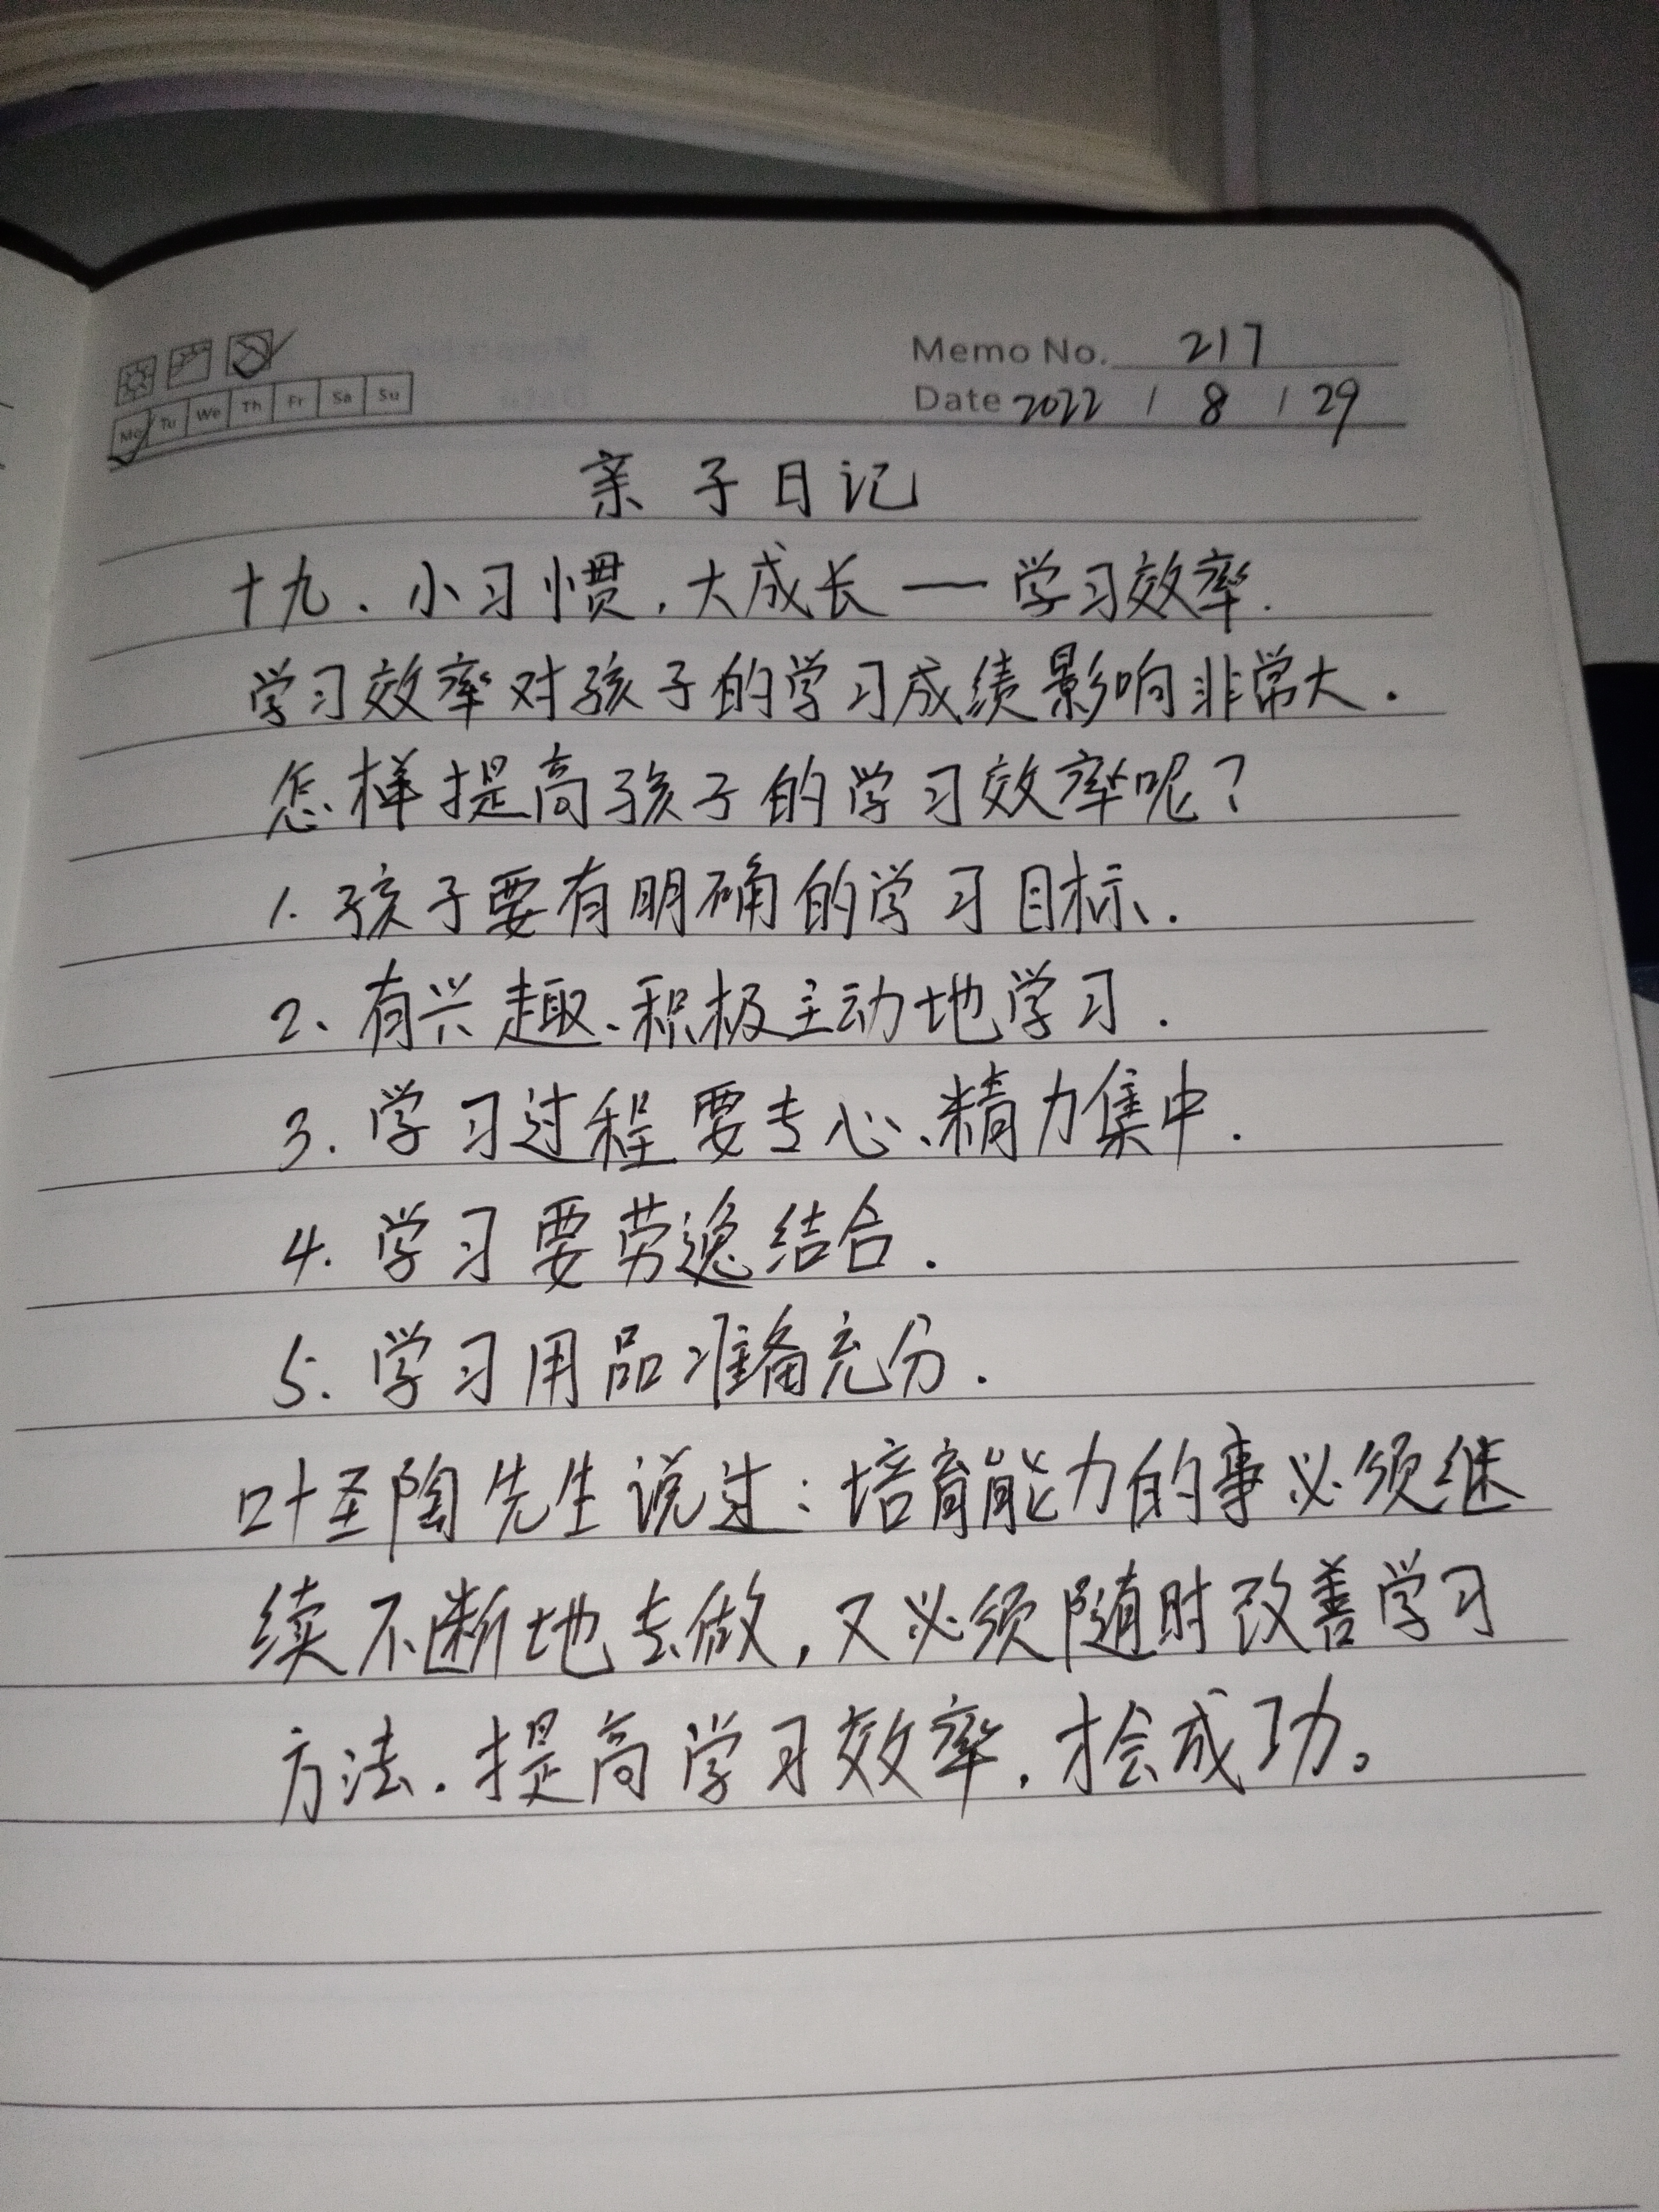 Memo No. 217
Mo Tu We Th Fr Sa Su
Date 2022 / 8 / 29
亲子日记
十九、小习惯,大成长—学习效率.
学习效率对孩子的学习成绩影响非常大.
怎样提高孩子的学习效率呢?
1. 孩子要有明确的学习目标.
2、有兴趣、积极主动地学习.
3. 学习过程要专心、精力集中.
4. 学习要劳逸结合.
5. 学习用品准备充分.
叶圣陶先生说过:培育能力的事必须继
续不断地去做,又必须随时改善学习
方法.提高学习效率,才会成功。